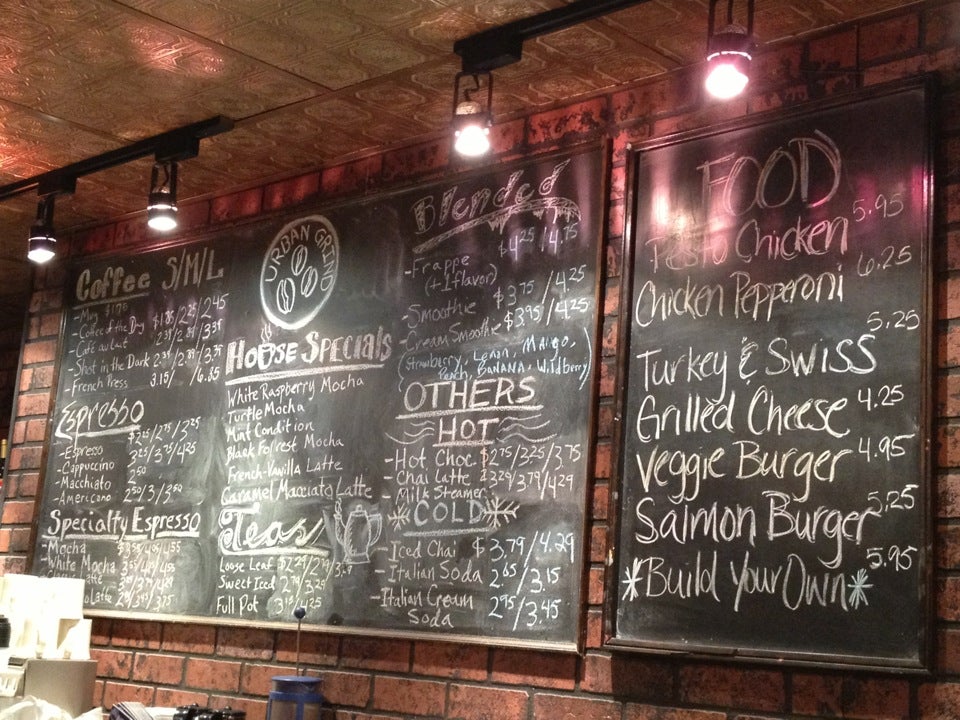 Coffee S/M/L
- Mug $1.75
- Coffee of the Day $1.85/2.25/2.45
- Café au Lait
- Shot in the Dark
- French Press 3.15 /6.35
Espresso
$2.25/2.75/3.25
- Espresso
- Cappuccino 3.25/3.75/4.25
- Macchiato 2.50
- Americano 2.50/3/3.50
Specialty Espresso
- Mocha
- White Mocha
URBAN GRIND
House Specials
White Raspberry Mocha
Turtle Mocha
Mint Condition
Black Forrest Mocha
French-Vanilla Latte
Caramel Macciato Latte
Teas
Loose Leaf $2.29/2.79/
Sweet Iced 2.79/3.29
Full Pot 3.15/4.25
Blended
$4.25/4.75
- Frappe
(+1 flavor)
- Smoothie $3.75/4.25
- Cream Smoothie $3.95/4.25
(Strawberry, Lemon, Mango,
Peach, BANANA, Wildberry)
OTHERS
HOT
- Hot Choc. $2.75/3.25/3.75
- Chai Latte $3.29/3.79/4.29
- Milk Steamer
COLD
- Iced Chai $3.79/4.29
- Italian Soda 2.65/3.15
- Italian Cream Soda 2.95/3.45
FOOD
5.95
Pesto Chicken
6.25
Chicken Pepperoni
5.25
Turkey & Swiss
Grilled Cheese 4.25
Veggie Burger 4.95
Salmon Burger 5.25
*Build Your Own* 5.95